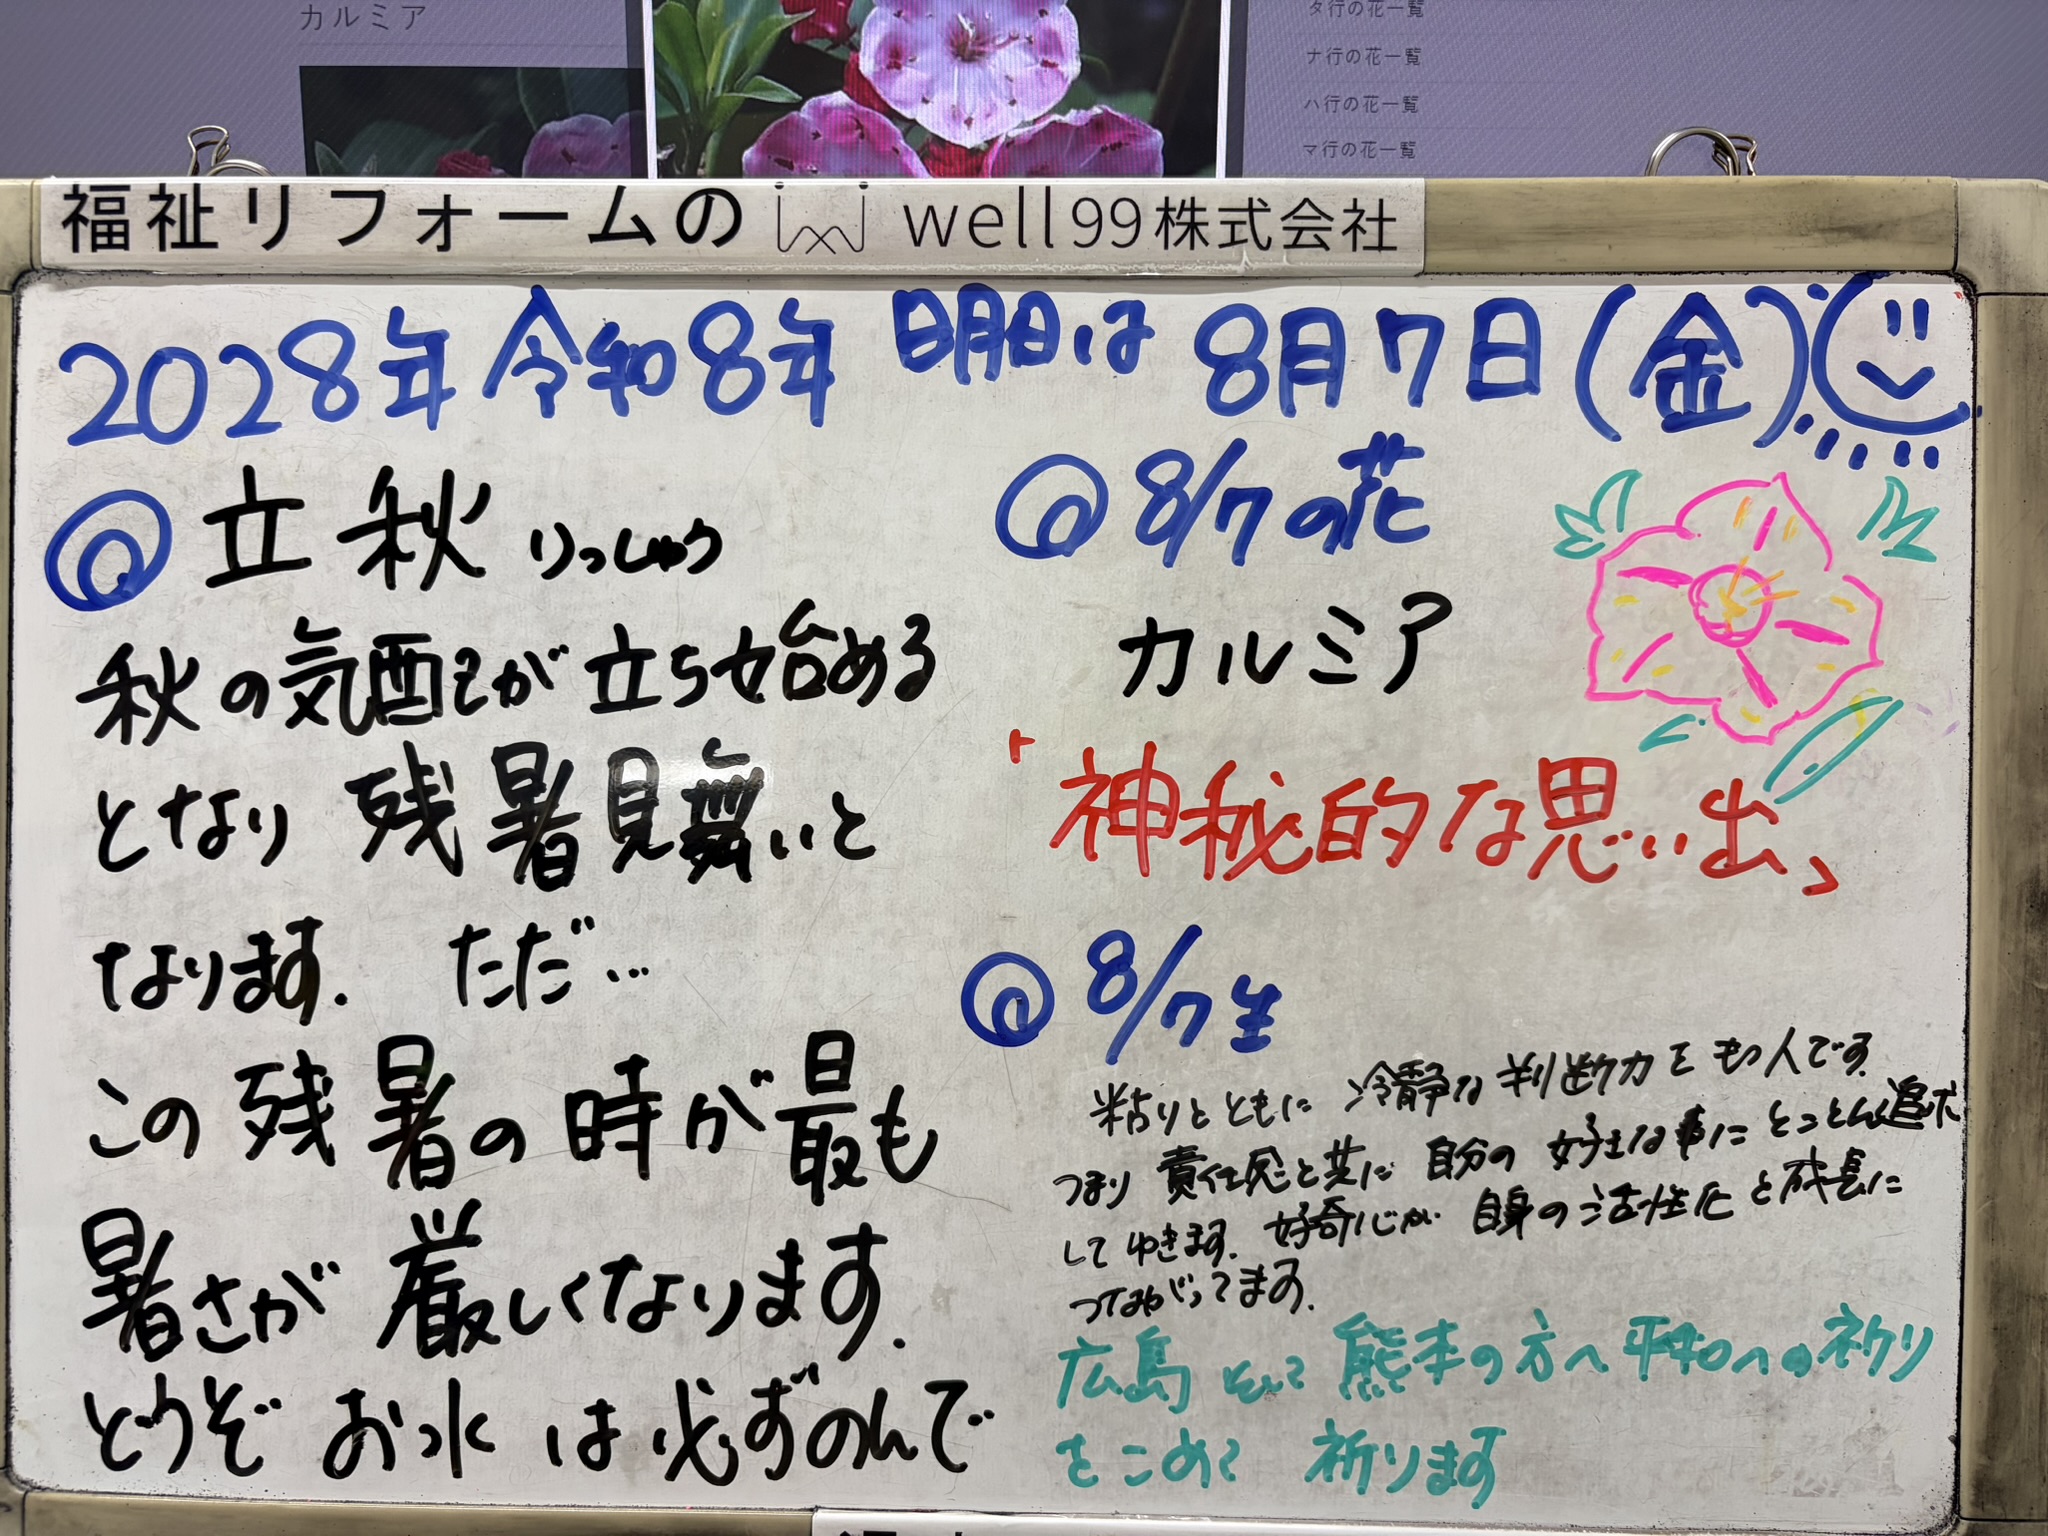 カルミア
タ行の花一覧
ナ行の花一覧
ハ行の花一覧
マ行の花一覧
福祉リフォームの well99株式会社
2028年 令和8年 明日は 8月7日(金)
立秋 りっしゅう
秋の気配が立ち始める
となり 残暑見舞いと
なります. ただ…
この残暑の時が最も
暑さが厳しくなります.
どうぞ お水は必ずのんで
8/7の花
カルミア
「神秘的な思い出」
8/7生
粘りとともに 冷静な判断力をもつ人です.
つまり 責任感と共に 自分の 好きな事にとことん追求
してゆきます. 好奇心が 自身の活性化と成長に
つながってます.
広島 そして 熊本の方へ 平和への祈り
をこめて 祈ります